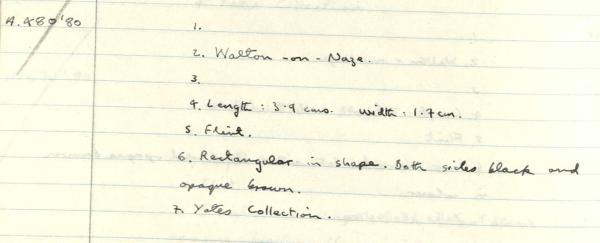 A.480'80
1.
2. Walton-on-Naze.
3.
4. Length: 3.9 cms. Width: 1.7cm.
5. Flint.
6. Rectangular in shape. Both sides black and
opaque brown.
7. Yates Collection.